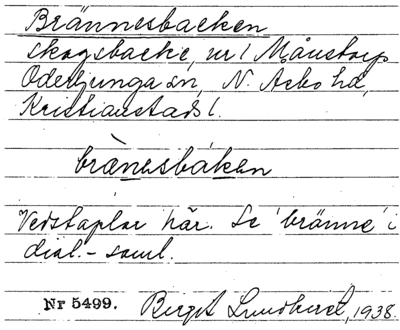 Brännesbacken
skogsbacke, nr 1 Månstorp
Oderljunga sn, N. Åsbo hd,
Kristianstads l.
brànesbáken
Vedstaplar här. Se 'bränne' i
dial.-saml.
Nr 5499. Birgit Lundherst, 1938.